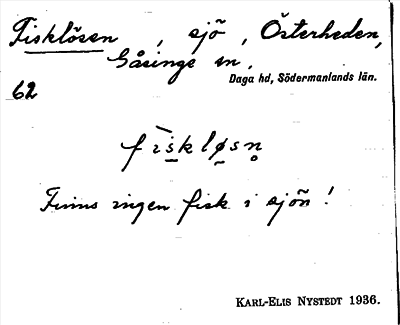 Fisklösen, sjö, Österheden,
Gåsinge sn,
Daga hd, Södermanlands län.
62
fìskløsn̥
Finns ingen fisk i sjön!
KARL-ELIS NYSTEDT 1936.